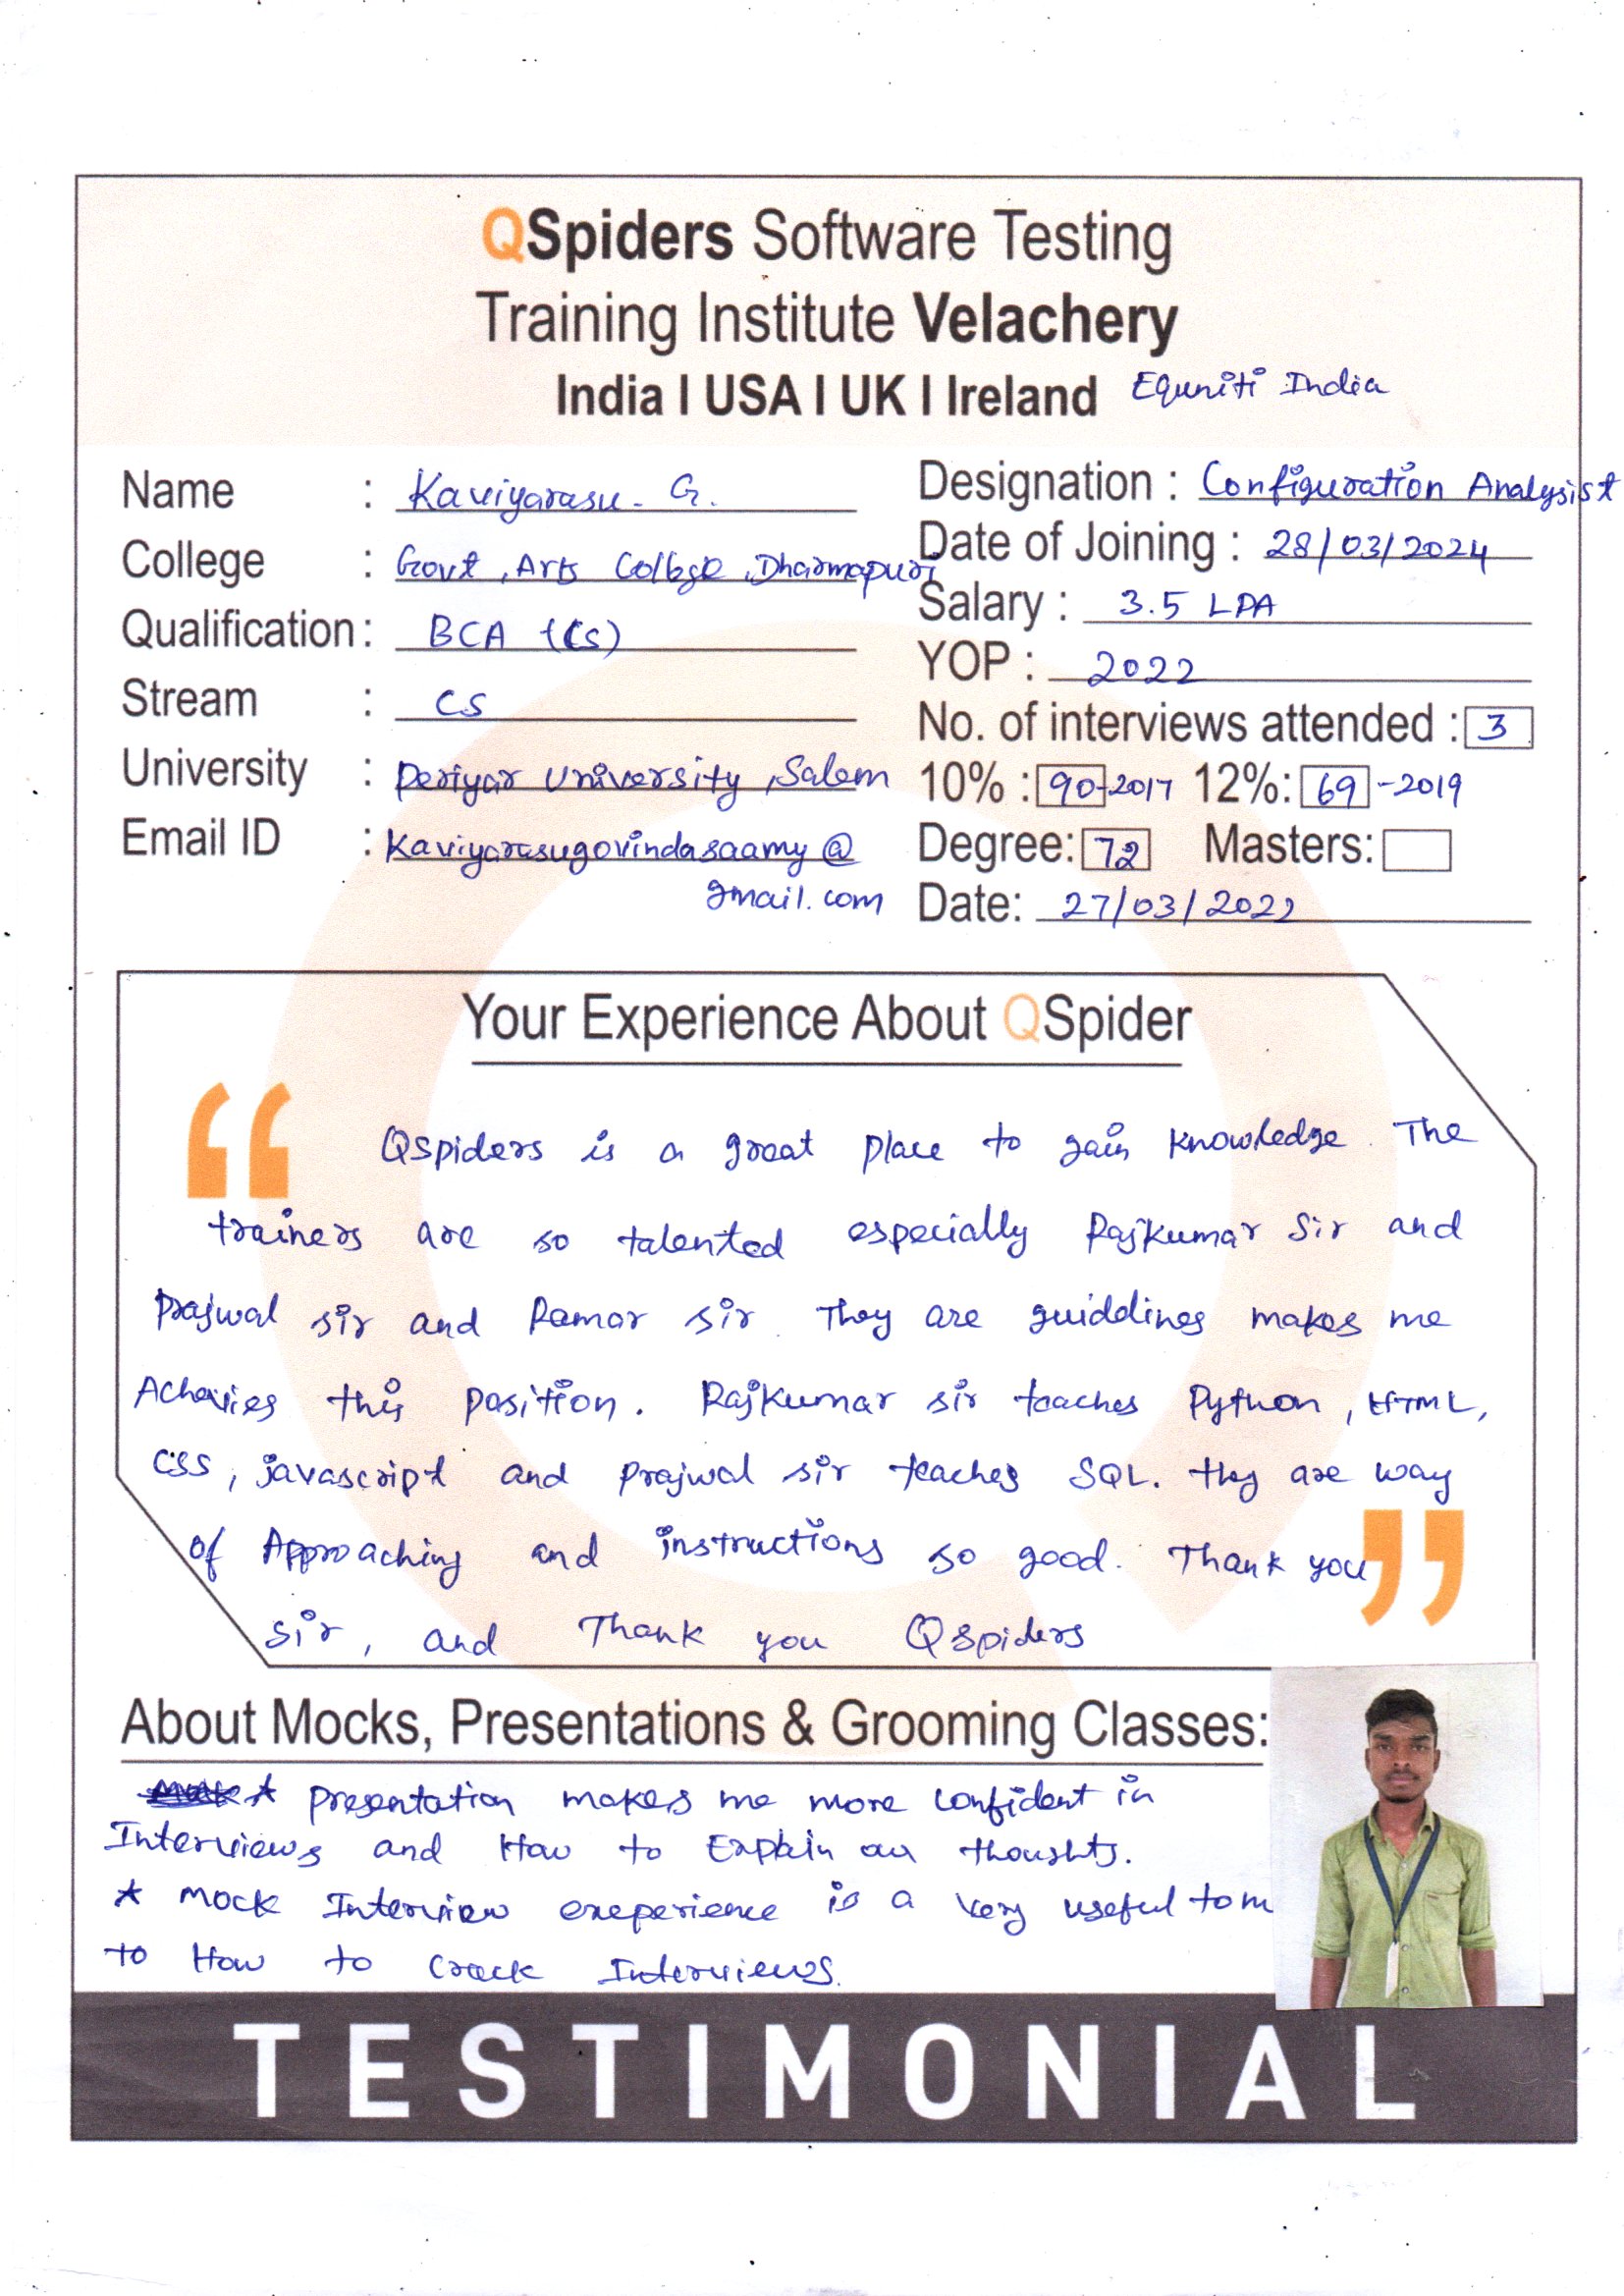 QSpiders Software Testing
Training Institute Velachery
India I USA I UK I Ireland Equniti India
Name : Kaviyarasu. G.
College : Govt, Arts College, Dharmapuri
Qualification: BCA (CS)
Stream : CS
University : Periyar University, Salem
Email ID : Kaviyarasugovindasaamy@
gmail.com
Designation : Configuration Analysist
Date of Joining : 28/03/2024
Salary : 3.5 LPA
YOP : 2022
No. of interviews attended : 3
10% : 90-2017 12%: 69-2019
Degree: 72 Masters:
Date: 27/03/2022
Your Experience About QSpider
“ Qspiders is a great place to gain knowledge. The
trainers are so talented especially Rajkumar Sir and
Prajwal sir and Ramar sir. They are guiddines makes me
Acheivies this position. Rajkumar sir teaches Python, HTML,
CSS, javascript and prajwal sir teaches SQL. they are way
of Approaching and instructions so good. Thank you ”
sir, and Thank you Qspiders
About Mocks, Presentations & Grooming Classes:
★ presentation makes me more confident in
Interviews and How to Explain our thoughts.
★ mock Interview exeperience is a very useful to m
to How to crack Interviews.
TESTIMONIAL